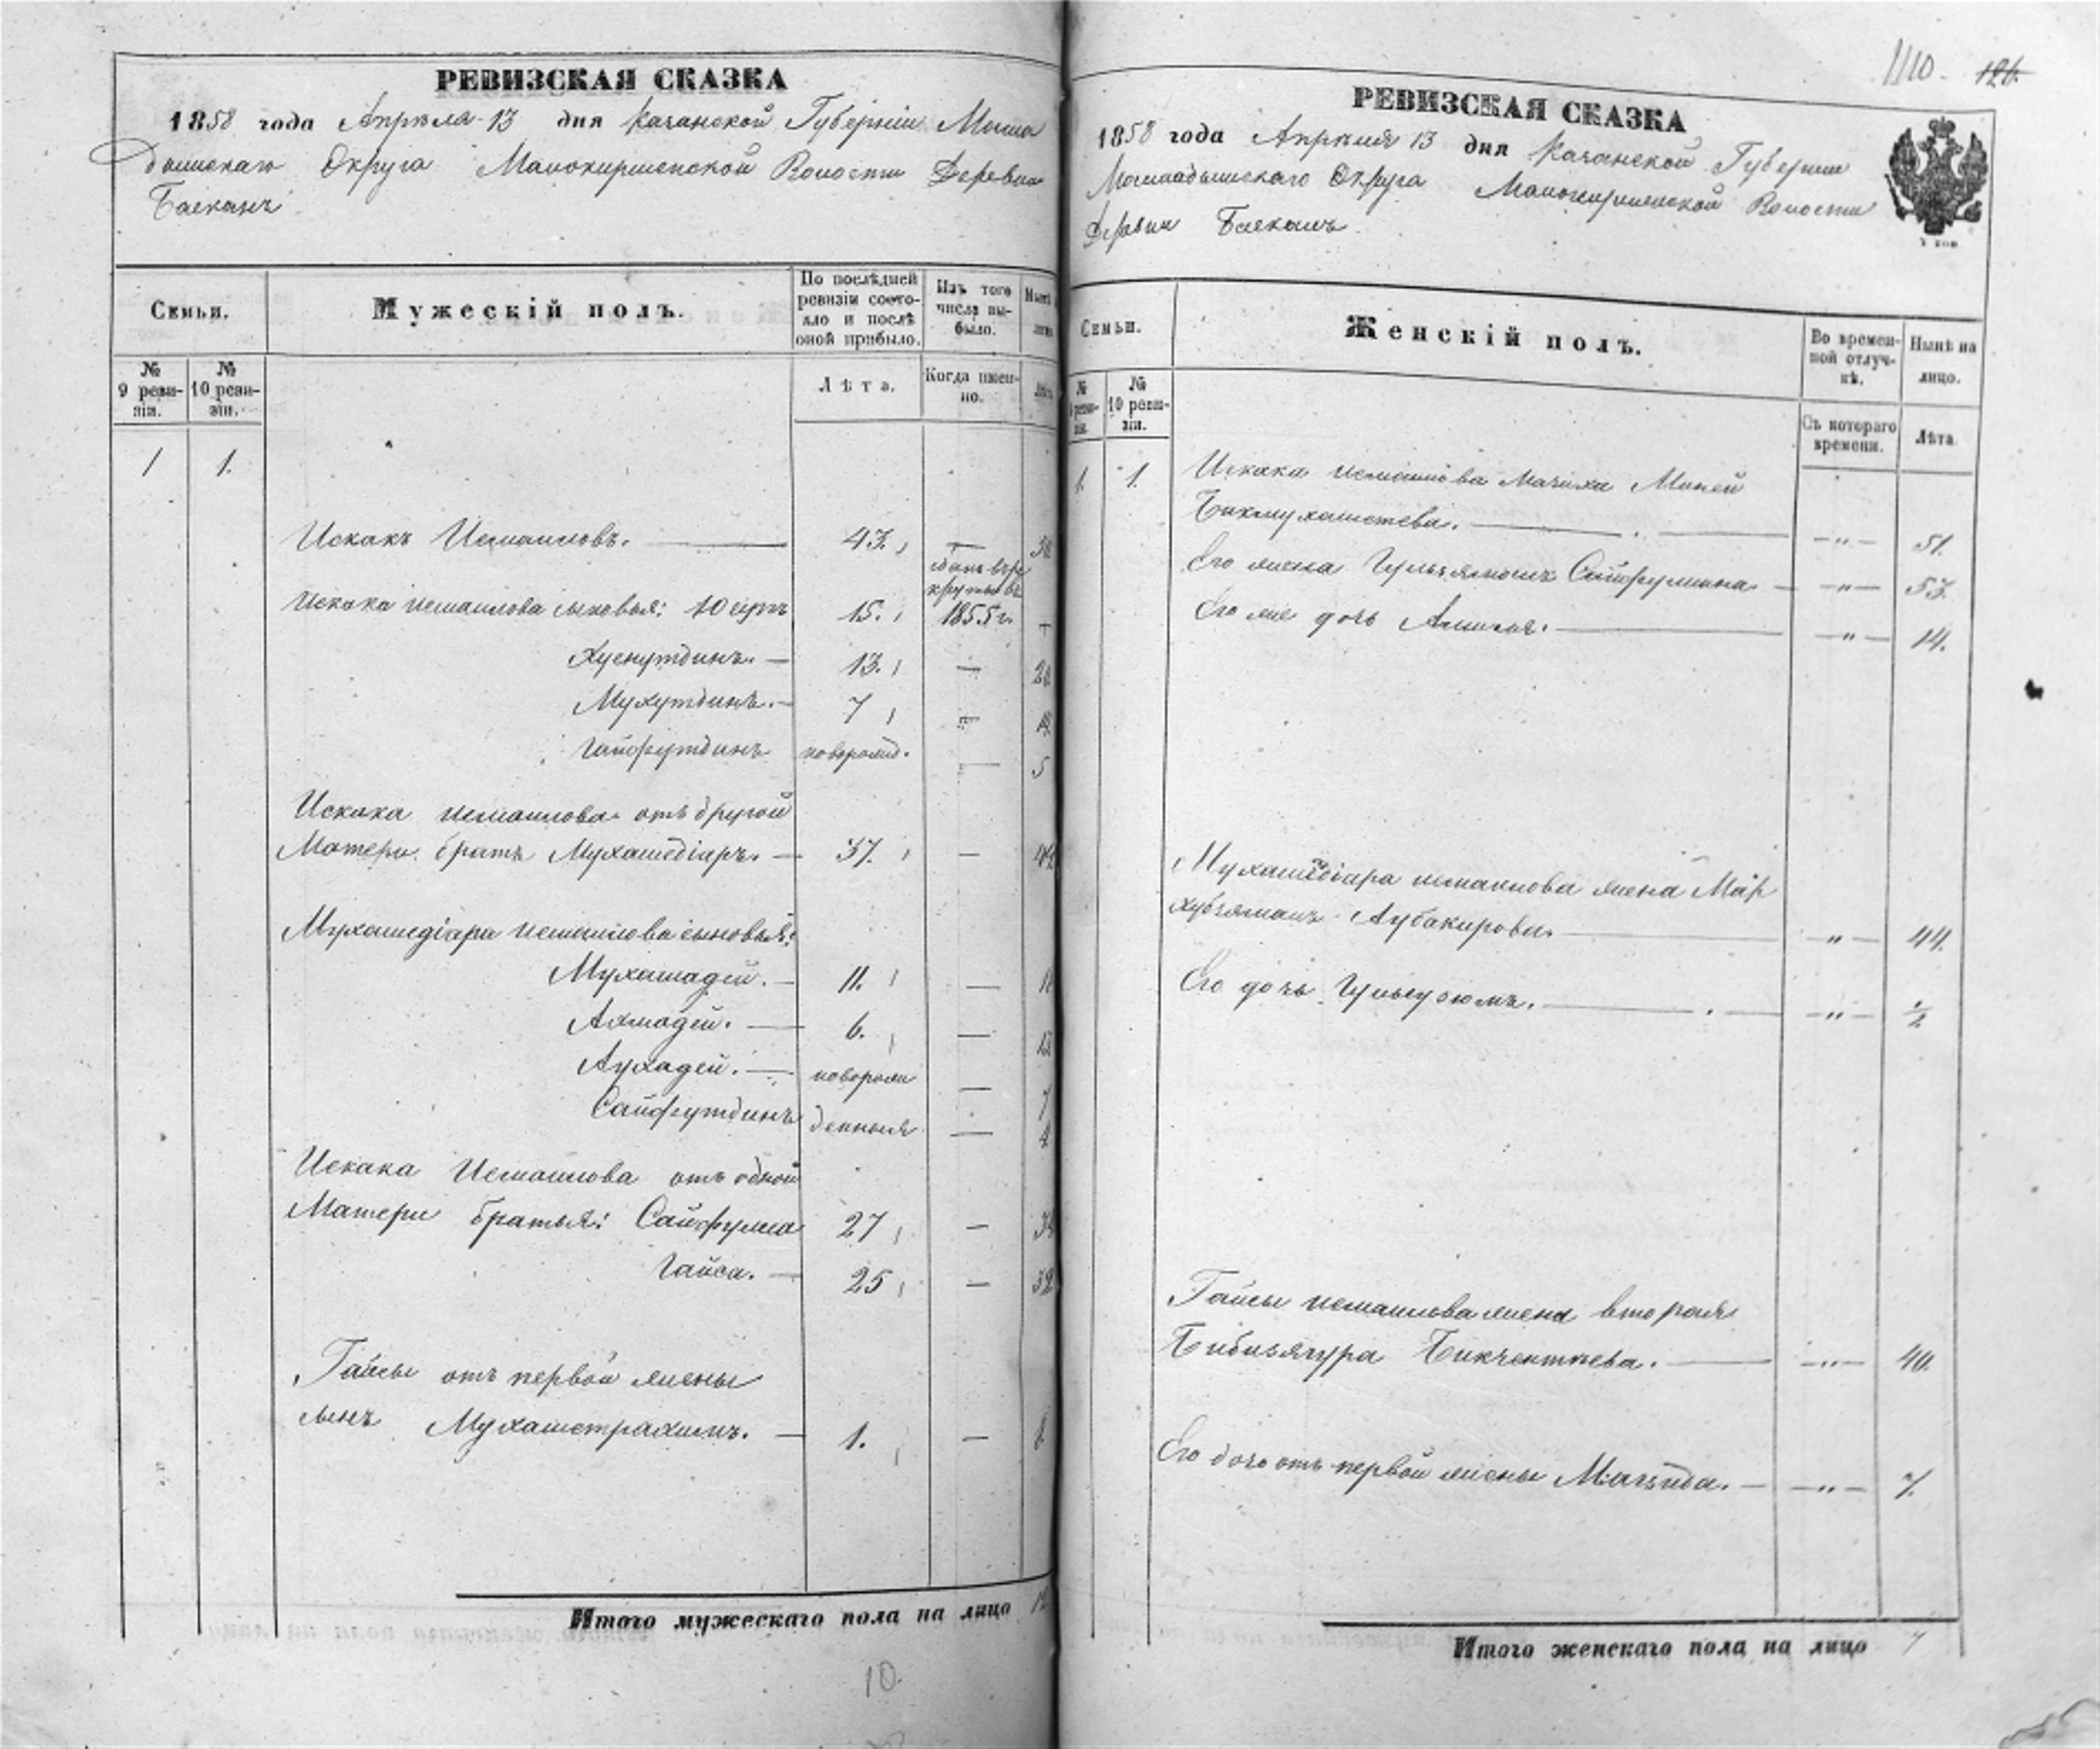 РЕВИЗСКАЯ СКАЗКА
1858 года Апрѣля 13 дня Казанской Губерніи Мама
дышскаго Округа Малокирменской Волости Деревни
Баеканъ
Семьи.
Мужескій полъ.
По послѣдней ревизіи состояло и послѣ оной прибыло.
Изъ того числа выбыло.
Нынѣ
№ 9 ревизіи.
№ 10 ревизіи.
Лѣта.
Когда именно.
Лѣта
1 1.
Искакъ Исмаиловъ. 43. —
Искака Исмаилова сыновья: 15. 1855 г. —
Хуснутдинъ. — 13. — 20
Мухутдинъ. — 7 — 14
Гайфутдинъ новорожд. — 5
Искака Исмаилова отъ другой
Матери братъ Мухамедіаръ. — 37. — 44
Мухамедіара Исмаилова сыновья:
Мухамадей. — 11. —
Ахмадей. — 6. — 13
Аухадей. — новорож — 7
Сайфутдинъ денныя — 4
Искака Исмаилова отъ одной
Матери братья: Сайфулла 27 — 34
Гайса. — 25 — 32
Гайсы отъ первой жены
сынъ Мухаметрахимъ. — 1. — 8
Итого мужескаго пола на лицо 12
10.
1110. 126.
РЕВИЗСКАЯ СКАЗКА
1858 года Апрѣля 13 дня Казанской Губерніи
Мамадышскаго Округа Малокирменской Волости
Деревни Баеканъ.
Семьи.
Женскій полъ.
Во временной отлучкѣ.
Нынѣ на лицо.
№ 9 ревизіи.
№ 10 ревизіи.
Съ котораго времени.
Лѣта
1. 1. Искака Исмаилова Мачиха
Бикмухаметева. — „ — 51.
Его жена Гульзямалъ Сайфуллина — „ — 53.
Его же дочь — „ — 14.
Мухамедіара Исмаилова жена Мар
хубзямалъ Аубакирова. — „ — 44.
Его дочь — „ — 1/2
Гайсы Исмаилова жена вторая
Бибизягура Бикчентаева. — „ — 40.
Его дочь отъ первой жены — „ — 7.
Итого женскаго пола на лицо 7